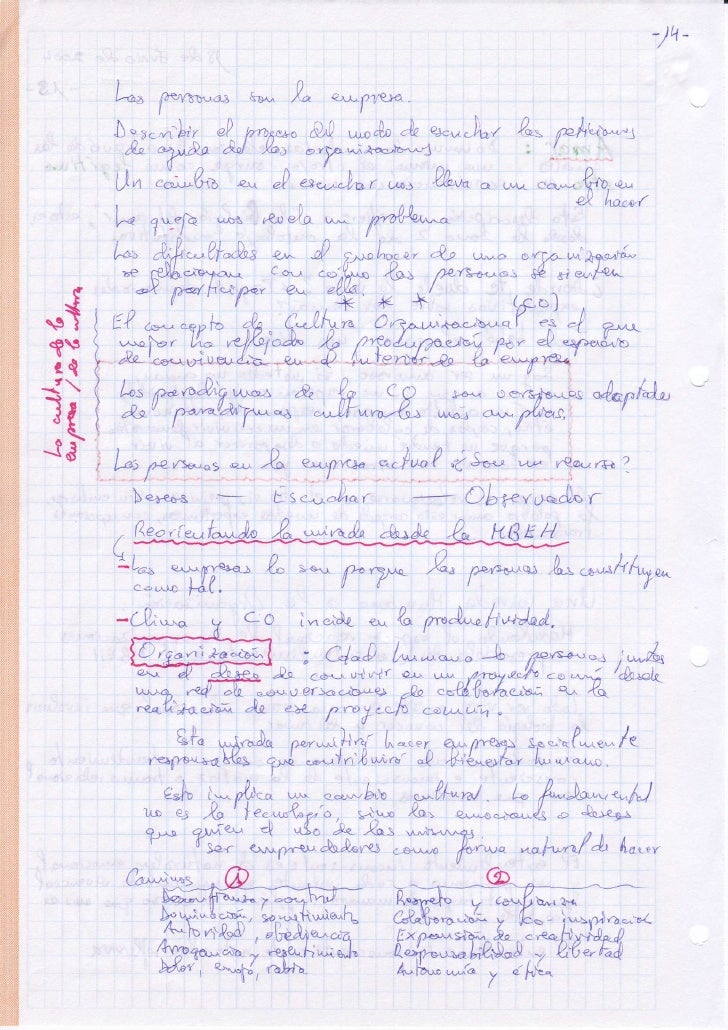 -14-
Las personas son la empresa.
Describir el proceso del modo de escuchar las peticiones
de ayuda de las organizaciones
Un cambio en el escuchar nos lleva a un cambio en
el hacer
La queja nos revela un problema
Las dificultades en el quehacer de una organización
se relacionan con cómo las personas se sienten
al participar en ella.
* * * (CO)
El concepto de Cultura Organizacional es el que
mejor ha reflejado la preocupación por el espacio
de convivencia en el interior de la empresa
La cultura de la
empresa / es la cultura
Los paradigmas de la CO son versiones adaptadas
de paradigmas culturales más amplios.
Las personas en la empresa actual ¿Son un recurso?
Deseos — Escuchar — Observador
Reorientando la mirada desde la MBEH
- Las empresas lo son porque las personas las constituyen
como tal.
- Clima y CO incide en la productividad.
Organización : Cdad humana → personas juntas
en el deseo de convivir en un proyecto común desde
una red de conversaciones de colaboración en la
realización de ese proyecto común.
Esta mirada permitirá hacer empresas socialmente
responsables que contribuirá al bienestar humano.
Esto implica un cambio cultural. Lo fundamental
no es la tecnología, sino las emociones o deseos
que guían el uso de las mismas
ser emprendedores como forma natural de hacer
Caminos 1 2
Desconfianza y control Respeto y confianza
Dominación, sometimiento Colaboración y co-inspiración
Autoridad, obediencia Expansión de creatividad
Arrogancia y resentimiento Responsabilidad y libertad
Dolor, enojo, rabia Autonomía y ética